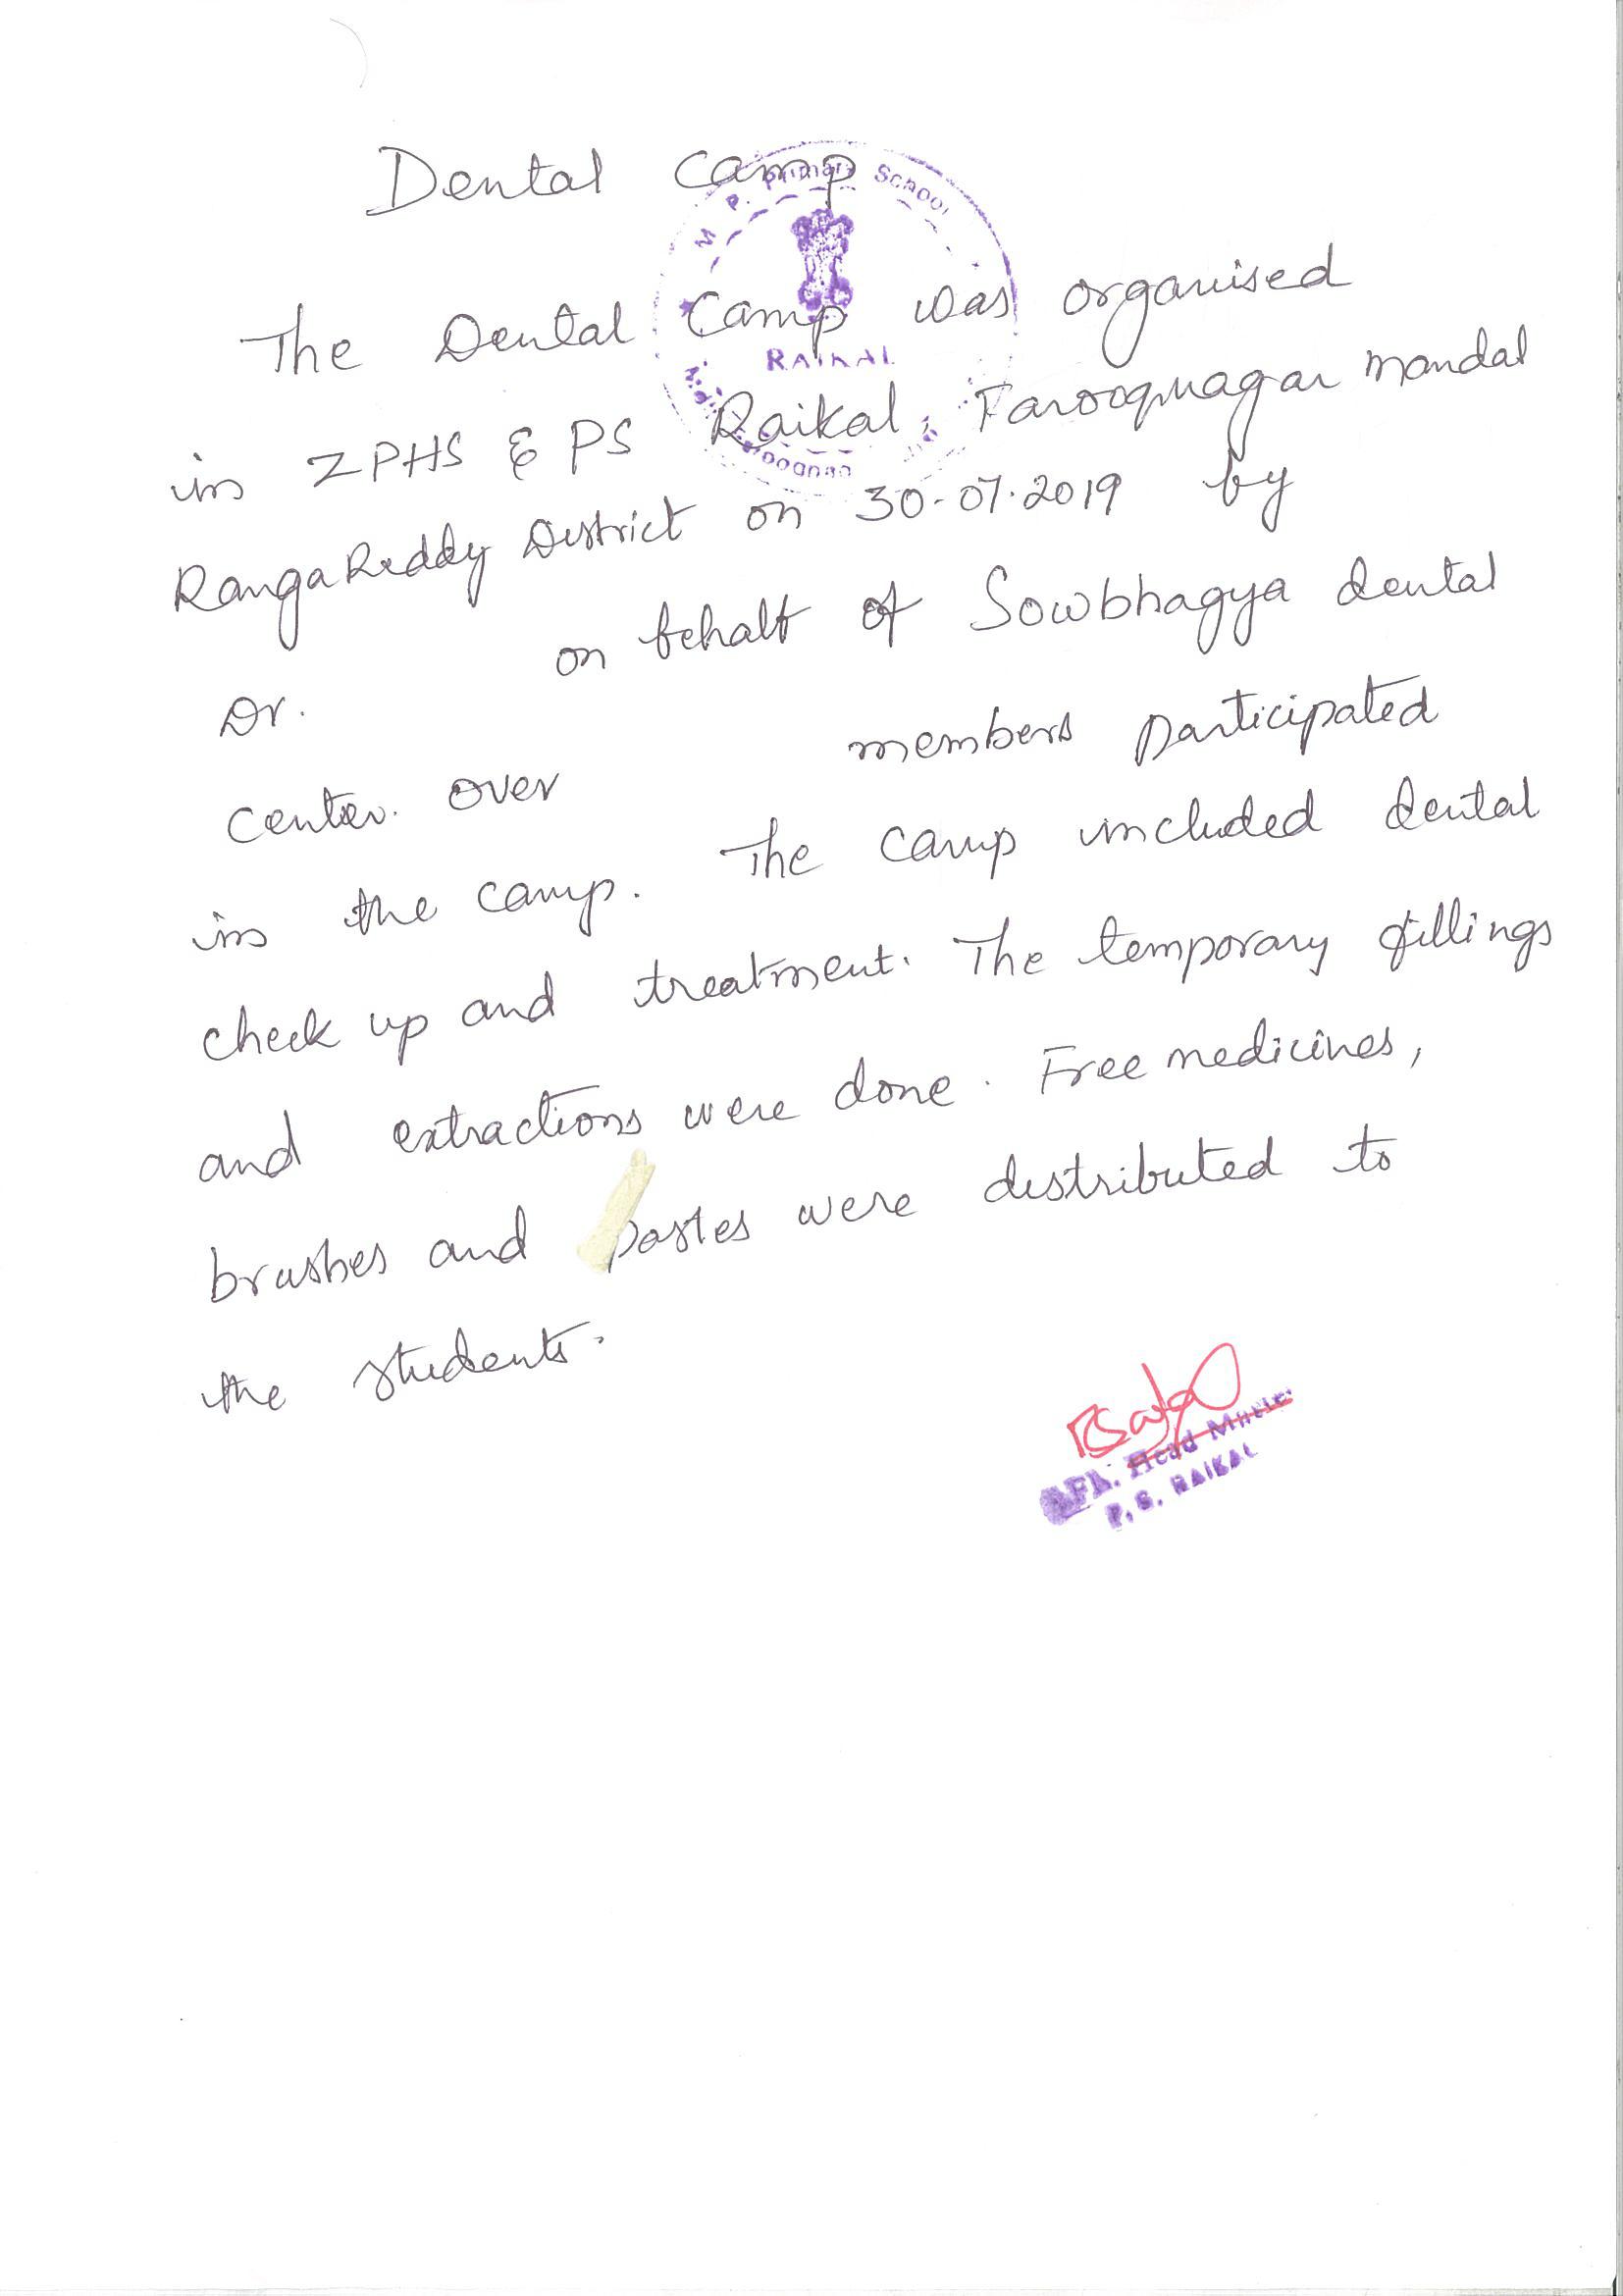 Dental Camp
M. P. Primary School
RAIKAL
The Dental Camp was organised
in ZPHS & PS Raikal, Farooqnagar mandal
RangaReddy District on 30-07.2019 by
Dr. on behalf of Sowbhagya dental
center. Over members participated
in the camp. The camp included dental
check up and treatment. The temporary fillings
and extractions were done. Free medicines,
brushes and pastes were distributed to
the students.
Head
P. S. RAIKAL